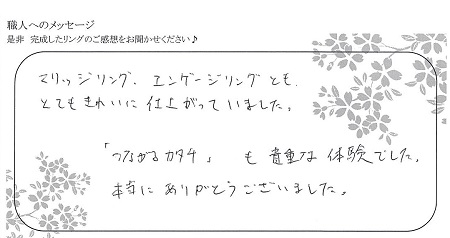 職人へのメッセージ
是非 完成したリングのご感想をお聞かせください♪
マリッジリング、エンゲージリングとも、
とてもきれいに仕上がっていました。
「つながるカタチ」 も 貴重な 体験でした。
本当に ありがとうございました。